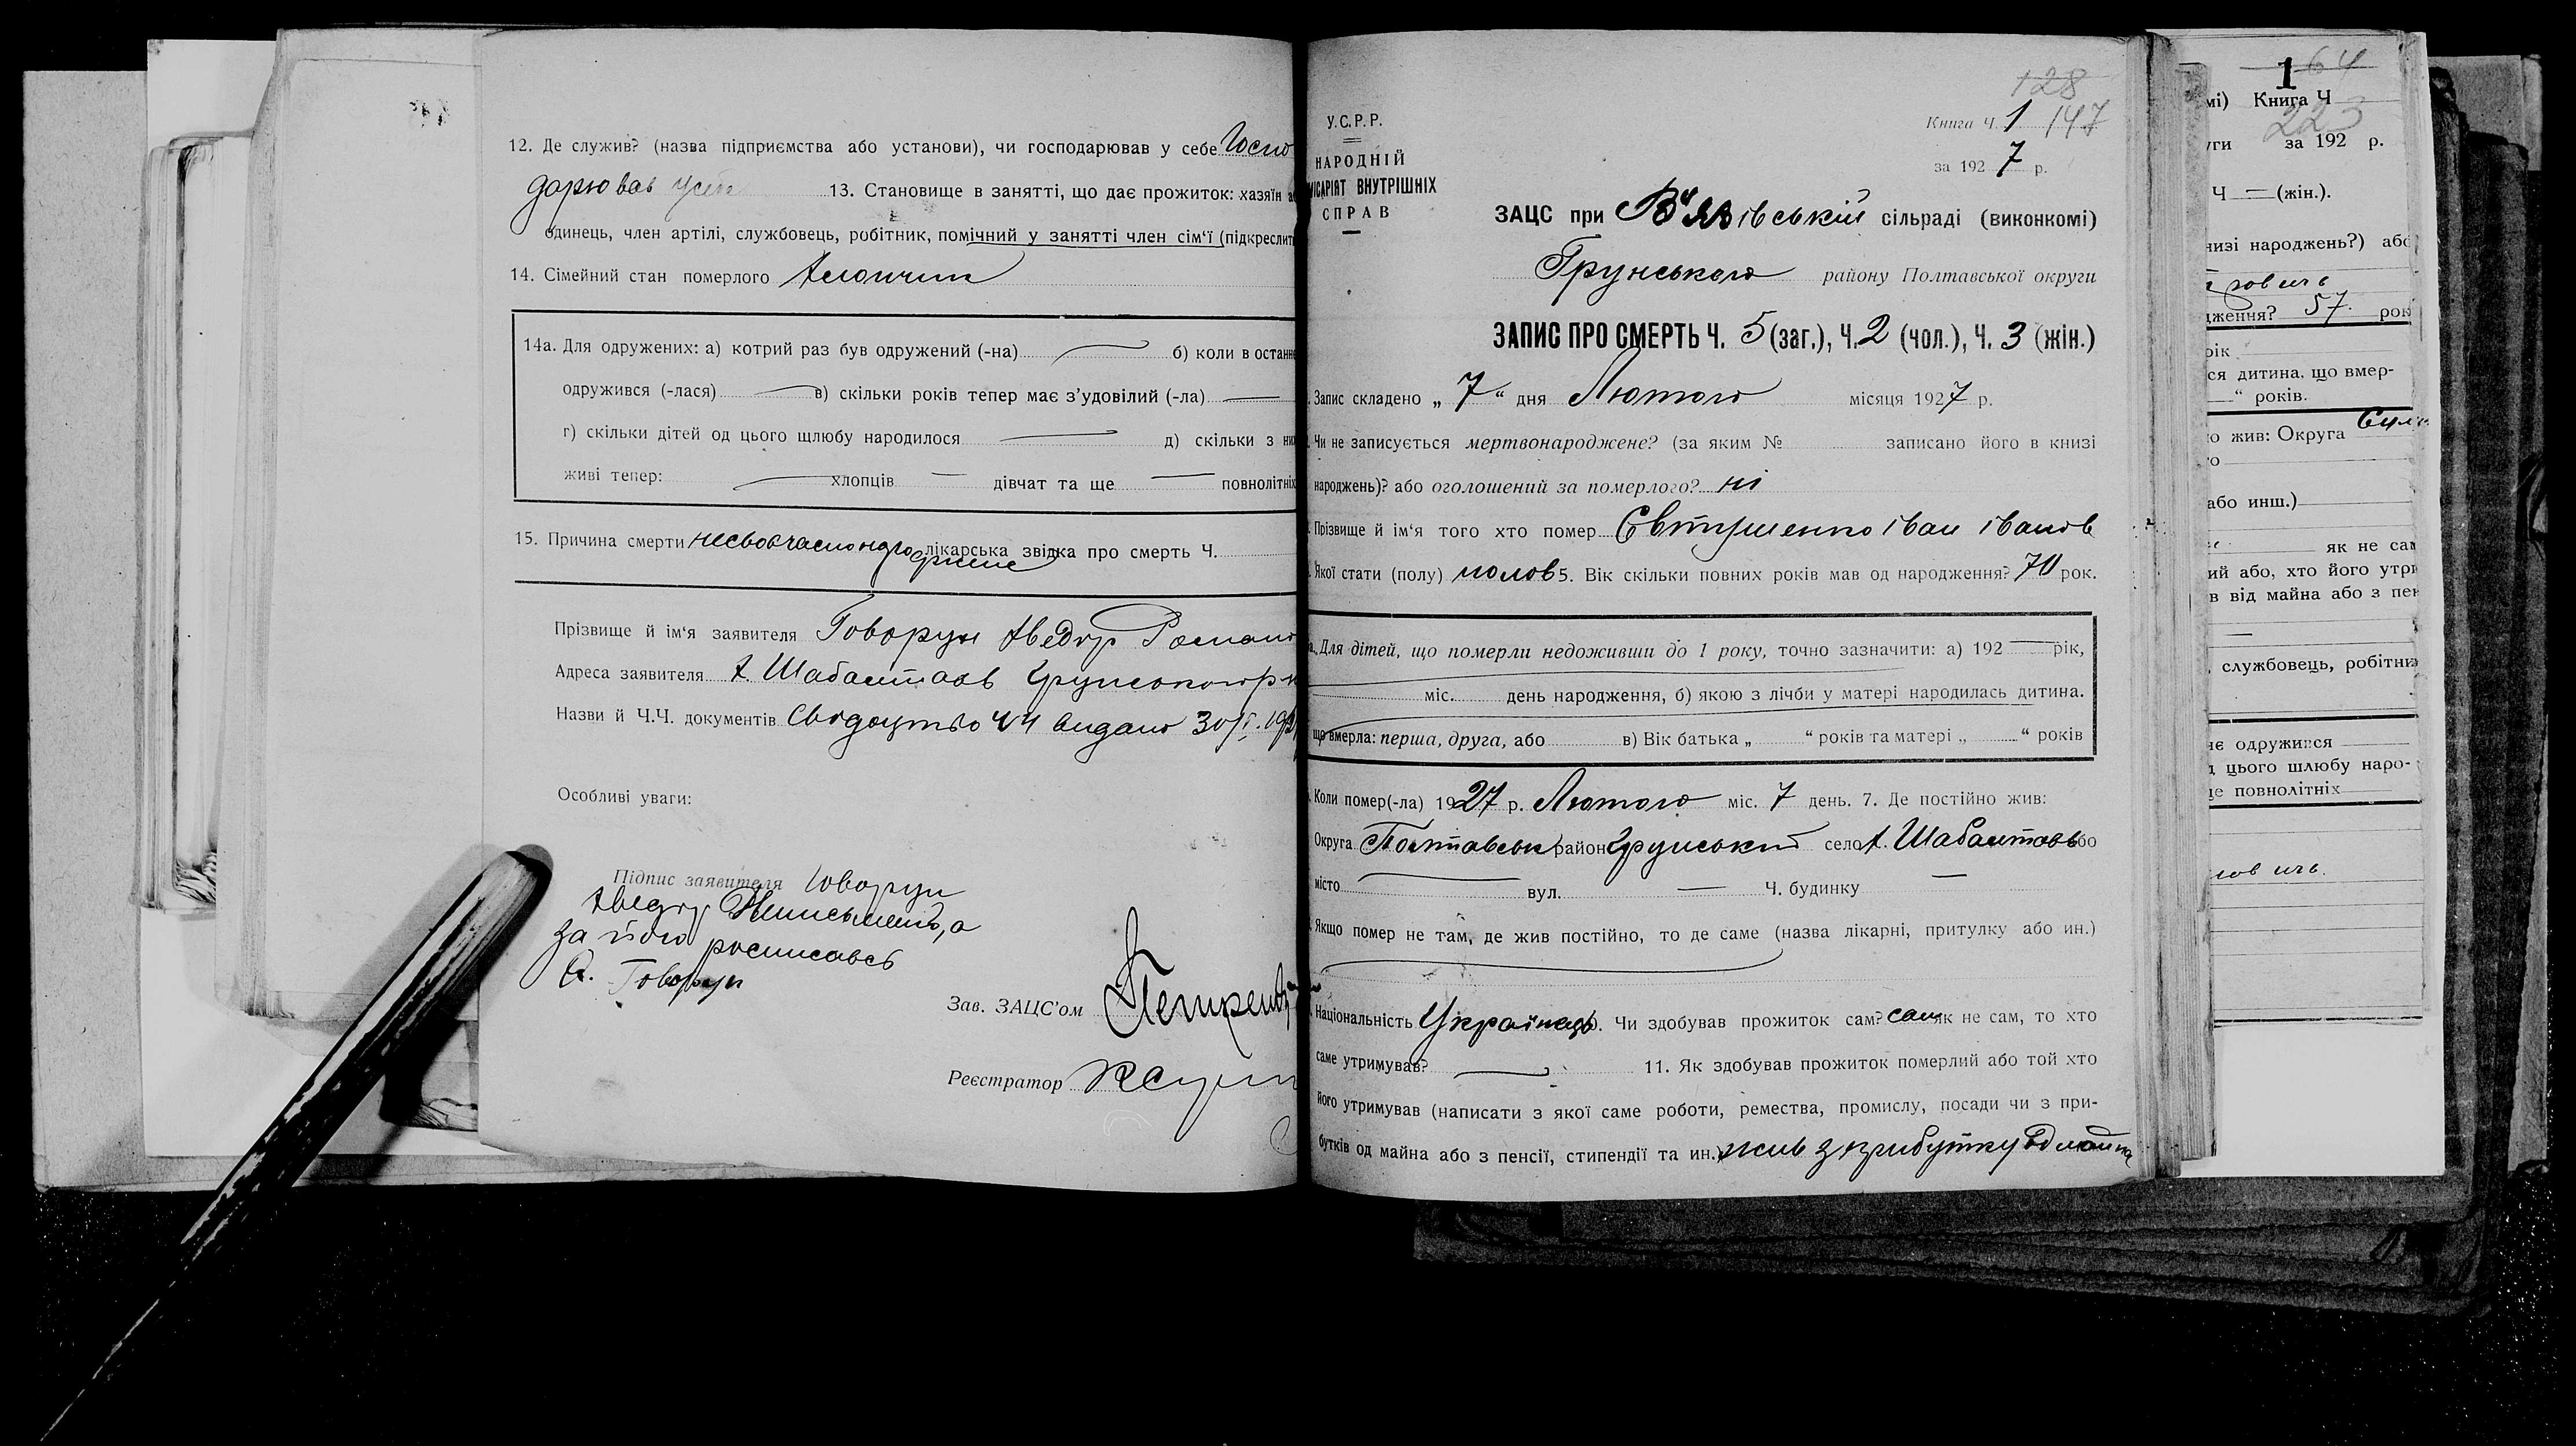 12. Де служив? (назва підприємства або установи), чи господарював у себе Госпо
дорював усеп 13. Становище в занятті, що дає прожиток: хазяїн
одинець, член артілі, службовець, робітник, помічний у занятті член сім'ї (підкреслити
14. Сімейний стан померлого
14а. Для одружених: а) котрий раз був одружений (-на) б) коли в останнє
одружився (-лася) в) скільки років тепер має з'удовілий (-ла)
г) скільки дітей од цього щлюбу народилося д) скільки з них
живі тепер: хлопців дівчат та ще повнолітніх
15. Причина смерти лікарська звідка про смерть Ч.
Прізвище й ім'я заявителя Говорун Хведор Романо
Адреса заявителя х. Шабаштов Грунського р
Назви й Ч.Ч. документів Свідоцтво Ч4 видано 30/I
Особливі уваги:
Підпис заявителя Говорун
Хведор Неписьмен, а
за його росписавсь
Говорун
Зав. ЗАЦС'ом Петренко
Реєстратор
128
У.С.Р.Р.
Книга Ч. 1 147
НАРОДНІЙ
за 1927 р.
МІСАРІЯТ ВНУТРІШНІХ
СПРАВ
ЗАЦС при В'язівській сільраді (виконкомі)
Грунського району Полтавської округи
ЗАПИС ПРО СМЕРТЬ Ч. 5 (заг.), Ч. 2 (чол.), Ч. 3 (жін.)
Запис складено „7“ дня Лютого місяця 1927 р.
Чи не записується мертвонароджене? (за яким № записано його в книзі
народжень)? або оголошений за померлого? ні
Прізвище й ім'я того хто помер Євтушенко Іван Іванов
Якої стати (полу) чолов 5. Вік скільки повних років мав од народження? 70 рок.
Для дітей, що померли недоживши до 1 року, точно зазначити: а) 192 рік,
міс. день народження, б) якою з лічби у матері народилась дитина.
що вмерла: перша, друга, або в) Вік батька „ “ років та матері „ “ років
Коли помер(-ла) 1927 р. Лютого міс. 7 день. 7. Де постійно жив:
Округа Полтавськ район Грунський село х. Шабаштов або
місто вул. Ч. будинку
Якщо помер не там, де жив постійно, то де саме (назва лікарні, притулку або ин.)
Національність Українець 10. Чи здобував прожиток сам? сам як не сам, то хто
саме утримував? 11. Як здобував прожиток померлий або той хто
його утримував (написати з якої саме роботи, ремества, промислу, посади чи з при-
бутків од майна або з пенсії, стипендії та ин.) жив з прибутку од майна
1 64
мі) Книга Ч
223
уги за 192 р.
Ч — (жін.).
низі народжень?) або
ження? 57 рок
рік
ся дитина, що вмер-
“ років.
о жив: Округа
або инш.)
як не сам
ий або, хто його утри
в від майна або з пен
, службовець, робітник
нє одружився
д цього шлюбу наро-
ще повнолітніх